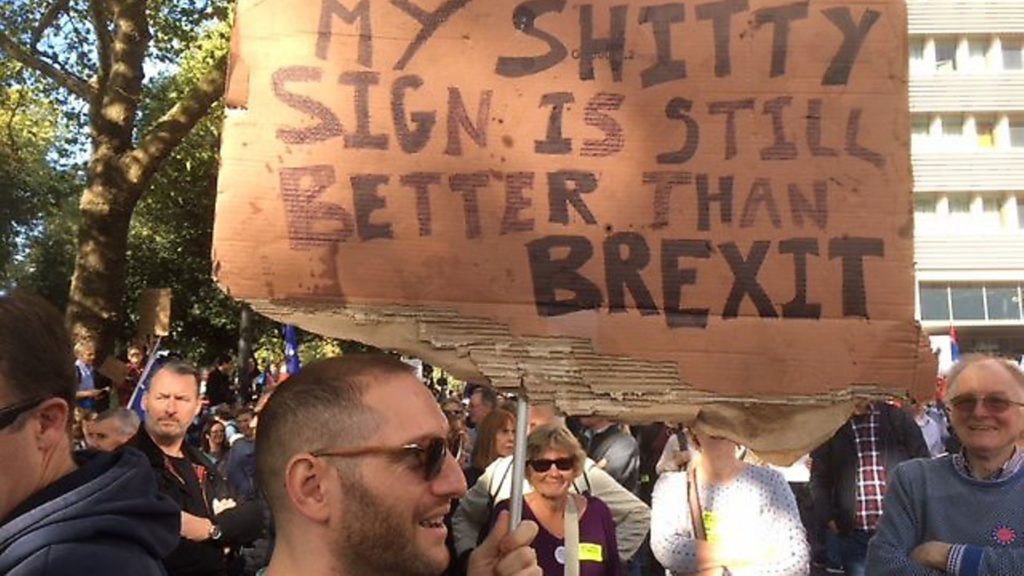 MY SHITTY
SIGN IS STILL
BETTER THAN
BREXIT